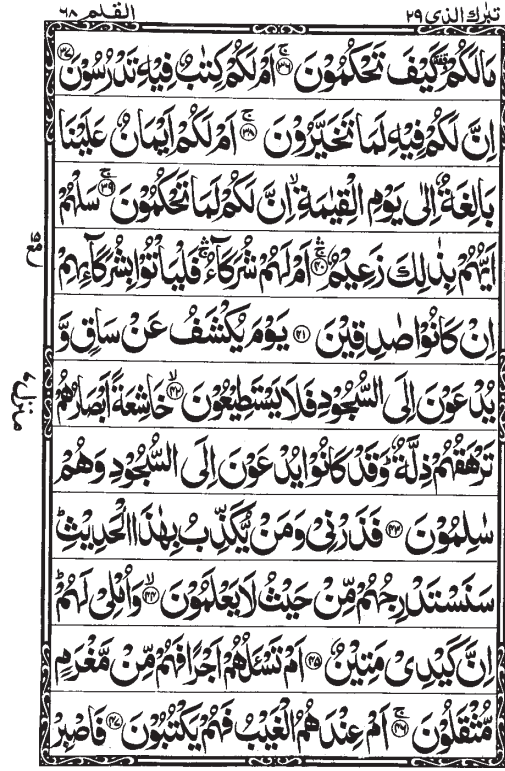 تبٰرك الذی ٢٩
القلم ٦٨
مَا لَكُمْ كَيْفَ تَحْكُمُوْنَ ﴿٣٦﴾ۚ اَمْ لَكُمْ كِتٰبٌ فِيْهِ تَدْرُسُوْنَ ﴿٣٧﴾
اِنَّ لَكُمْ فِيْهِ لَمَا تَخَيَّرُوْنَ ﴿٣٨﴾ۚ اَمْ لَكُمْ اَيْمَانٌ عَلَيْنَا
بَالِغَةٌ اِلٰى يَوْمِ الْقِيٰمَةِ ۙ اِنَّ لَكُمْ لَمَا تَحْكُمُوْنَ ﴿٣٩﴾ۚ سَلْهُمْ
اَيُّهُمْ بِذٰلِكَ زَعِيْمٌ ﴿٤٠﴾ۚۛ اَمْ لَهُمْ شُرَكَآءُ ۚۛ فَلْيَاْتُوْا بِشُرَكَآئِهِمْ
اِنْ كَانُوْا صٰدِقِيْنَ ﴿٤١﴾ يَوْمَ يُكْشَفُ عَنْ سَاقٍ وَّ
يُدْعَوْنَ اِلَى السُّجُوْدِ فَلَا يَسْتَطِيْعُوْنَ ﴿٤٢﴾ۙ خَاشِعَةً اَبْصَارُهُمْ
تَرْهَقُهُمْ ذِلَّةٌ ؕ وَقَدْ كَانُوْا يُدْعَوْنَ اِلَى السُّجُوْدِ وَهُمْ
سٰلِمُوْنَ ﴿٤٣﴾ فَذَرْنِيْ وَمَنْ يُّكَذِّبُ بِهٰذَا الْحَدِيْثِ ؕ
سَنَسْتَدْرِجُهُمْ مِّنْ حَيْثُ لَا يَعْلَمُوْنَ ﴿٤٤﴾ۙ وَاُمْلِيْ لَهُمْ ؕ
اِنَّ كَيْدِيْ مَتِيْنٌ ﴿٤٥﴾ اَمْ تَسْـَٔلُهُمْ اَجْرًا فَهُمْ مِّنْ مَّغْرَمٍ
مُّثْقَلُوْنَ ﴿٤٦﴾ۚ اَمْ عِنْدَهُمُ الْغَيْبُ فَهُمْ يَكْتُبُوْنَ ﴿٤٧﴾ فَاصْبِرْ
منزل ٧